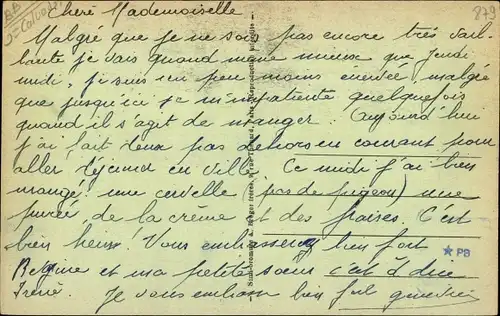 Chère Mademoiselle
Malgré que je ne sois pas encore très vail-
lante je vais quand même mieux que jeudi
midi, je suis un peu moins énervée, malgré
que jusqu'ici je m'impatiente quelquefois
quand il s'agit de manger. Aujourd'hui
j'ai fait deux pas dehors en courant pour
aller déjeuner en ville. Ce midi j'ai bien
mangé une cervelle (pas de pigeon) une
purée, de la crème et des fraises. C'est
bien heureux. Vous embrasserez bien fort
Régine et ma petite sœur c'est à dire
Irène. Je vous embrasse bien fort
879
PB